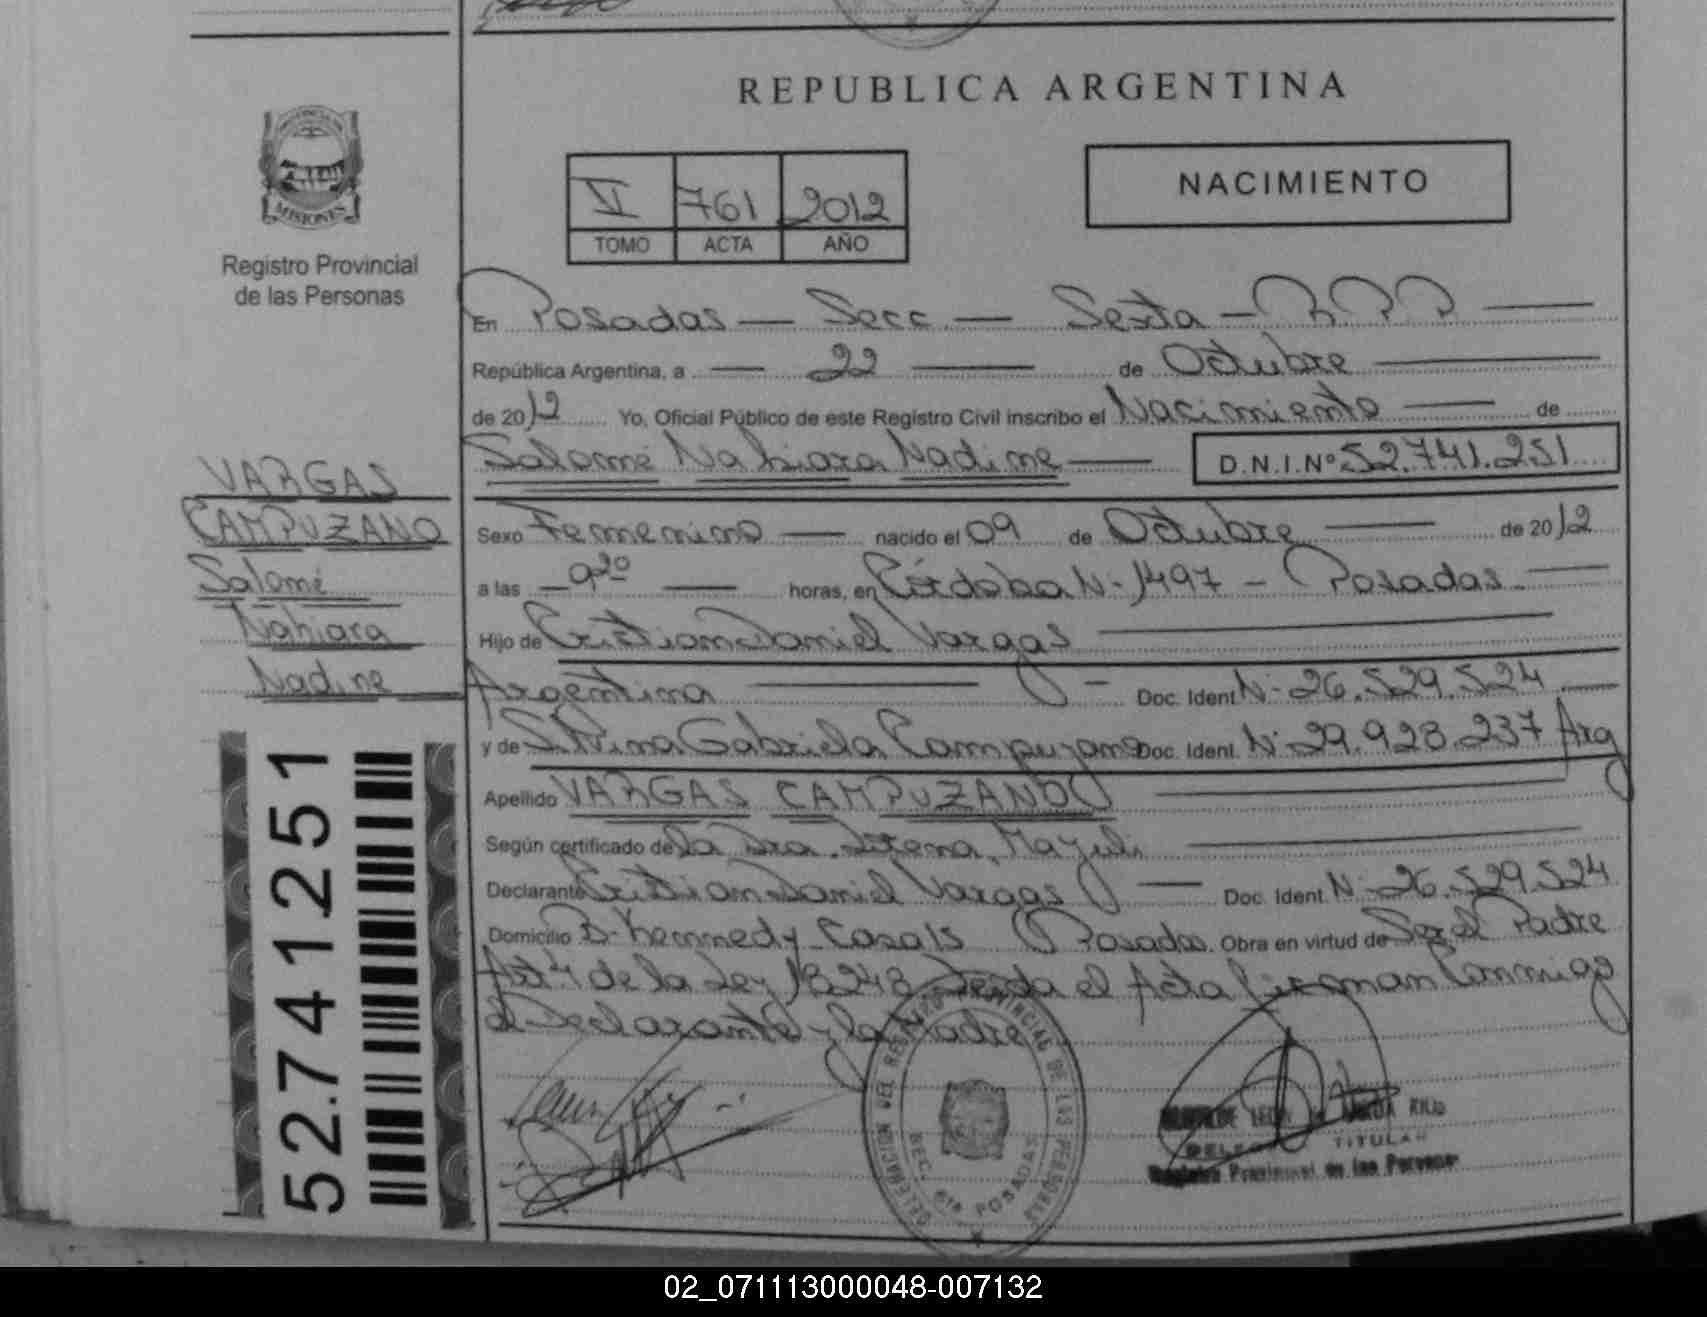 REPUBLICA ARGENTINA
MISIONES
Registro Provincial
de las Personas
VI 761 2012
TOMO ACTA AÑO
NACIMIENTO
En Posadas — Secc — Sexta —
República Argentina, a — 22 — de Octubre —
de 2012 Yo, Oficial Público de este Registro Civil inscribo el Nacimiento — de
Salomé Nahiara Nadine — D.N.I.Nº 52.741.251
VARGAS
CAMPUZANO
Salomé
Nahiara
Nadine
Sexo Femenino — nacido el 09 de Octubre — de 2012
a las — 9 20 — horas, en Córdoba N- 1497 - Posadas —
Hijo de Cristian Daniel Vargas —
Argentina — Doc. Ident. N- 26.529.524 —
y de Silvina Gabriela Campuzano Doc. Ident. N- 29.923.237 Arg
Apellido VARGAS CAMPUZANO —
Según certificado de la Dra. —
Declarante Cristian Daniel Vargas — Doc. Ident. N- 26.529.524
Domicilio B- Kennedy Casa 15 Posadas. Obra en virtud de Ser el Padre
Art 4 de la Ley 18248 Leida el Acta firman Conmigo
el Declarante y la Madre
DELEGACION DEL REGISTRO PROVINCIAL DE LAS PERSONAS
SEC. 6ta POSADAS
TITULAR
Registro Provincial de las Personas
52.741.251
02_071113000048-007132